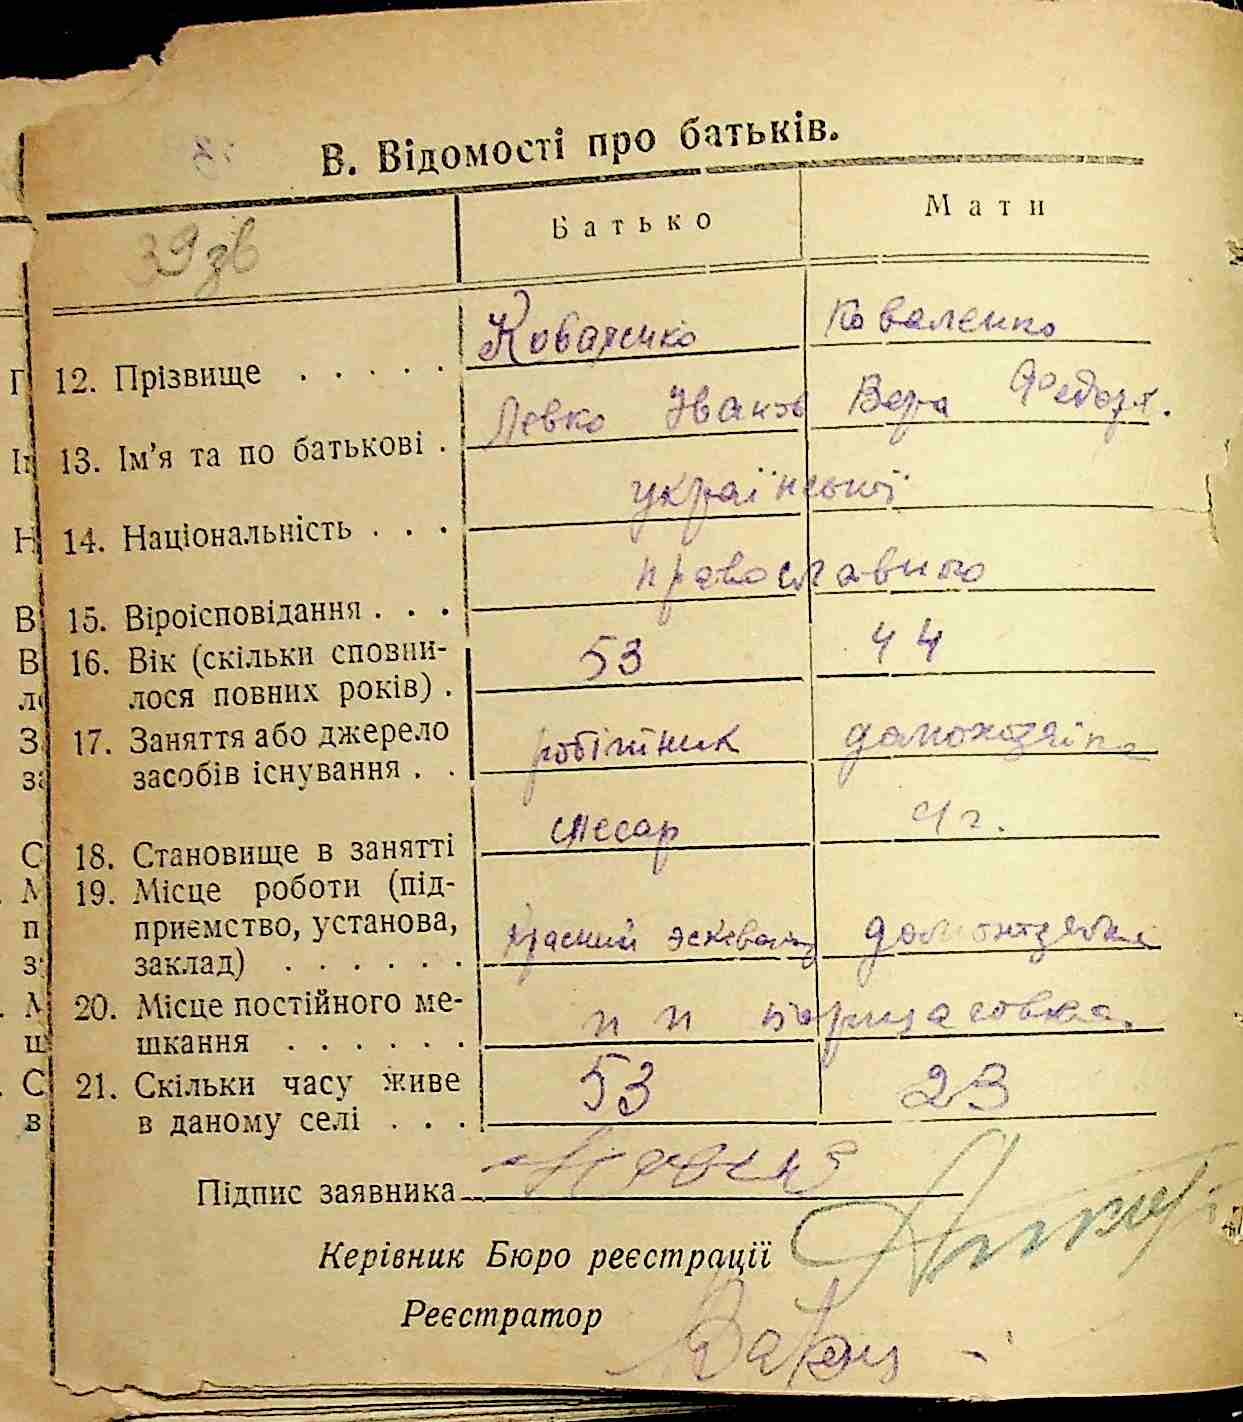 В. Відомості про батьків.
39 зв
Батько Мати
12. Прізвище . . . . . Коваленко Коваленко
13. Ім'я та по батькові . Левко Іванов Вера Федоря.
14. Національність . . . української
15. Віроісповідання . . . православного
16. Вік (скільки сповни-
лося повних років) . 53 44
17. Заняття або джерело
засобів існування . . робітник домохозяйка
18. Становище в занятті слесар
19. Місце роботи (під-
приємство, установа,
заклад) . . . . . . Красний домохозяйка
20. Місце постійного ме-
шкання . . . . . . п п
21. Скільки часу живе
в даному селі . . . 53 23
Підпис заявника
Керівник Бюро реєстрації
Реєстратор